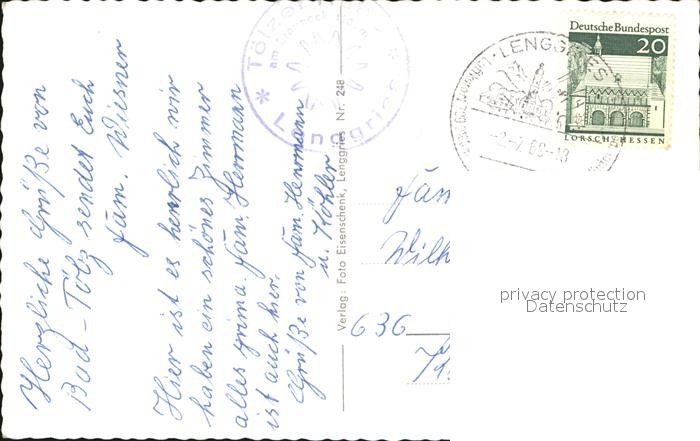 Herzliche Grüße von
Bad-Tölz sendet Euch
Fam. Wiesner
Hier ist es herrlich wir
haben ein schönes Zimmer
alles prima. Fam. Herrmann
ist auch hier.
Grüße von Fam. Herrmann
u. Köhler
Verlag: Foto Eisenschenk, Lenggries Nr. 248
Tölzer
Lenggries
LENGGRIES
Deutsche Bundespost
20
LORSCH/HESSEN
Fam
Wilh
636
privacy protection
Datenschutz